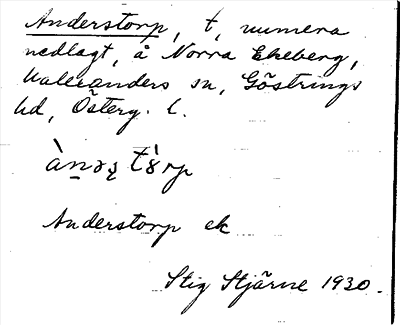 Anderstorp, t, numera
nedlagt, å Norra Ekeberg,
Kalleranders sn, Göstrings
hd, Österg. l.
Anderstorp ek
Stig Stjärne 1930.